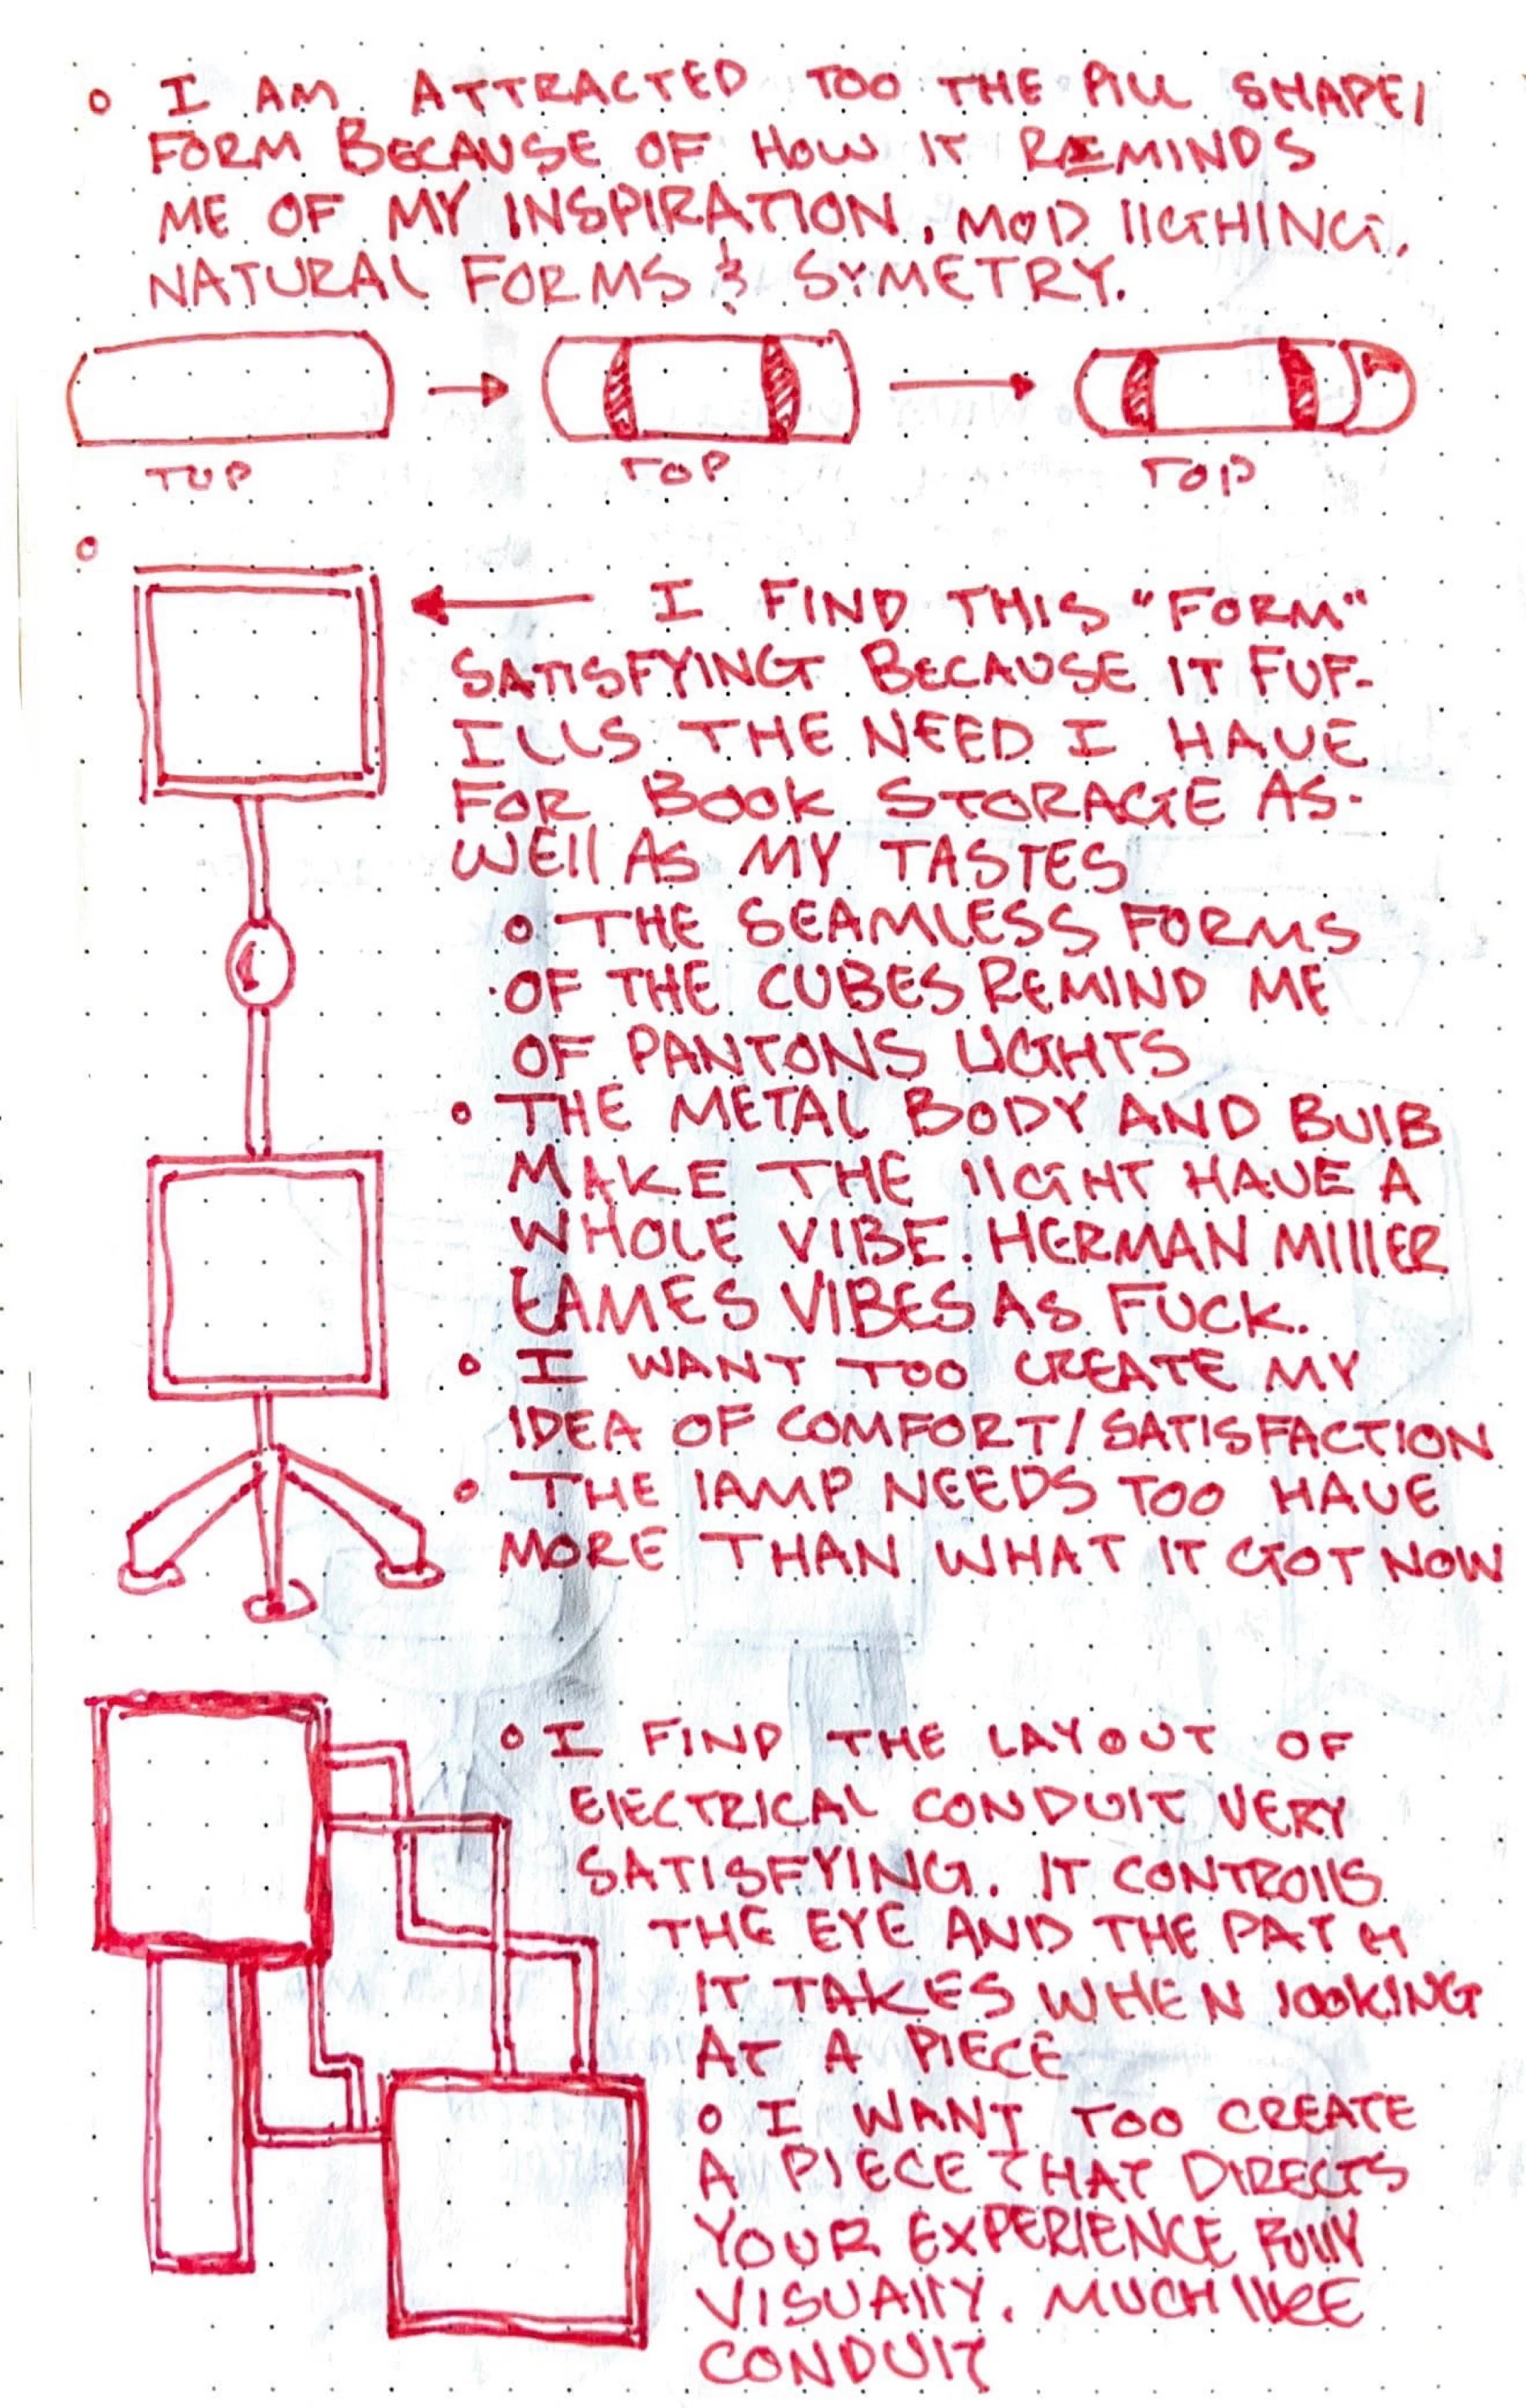 I AM ATTRACTED TOO THE PILL SHAPE/
FORM BECAUSE OF HOW IT REMINDS
ME OF MY INSPIRATION, MOD lIGTHING,
NATURAL FORMS & SYMETRY.
TOP
TOP
TOP
I FIND THIS "FORM"
SATISFYING BECAUSE IT FUF-
ILLS THE NEED I HAVE
FOR BOOK STORAGE AS-
WEll AS MY TASTES
THE SEAMLESS FORMS
OF THE CUBES REMIND ME
OF PANTONS LIGHTS
THE METAL BODY AND BUlB
MAKE THE lIGHT HAVE A
WHOLE VIBE. HERMAN MIllER
EAMES VIBES AS FUCK.
I WANT TOO CREATE MY
IDEA OF COMFORT/SATISFACTION
THE lAMP NEEDS TOO HAVE
MORE THAN WHAT IT GOT NOW
I FIND THE LAYOUT OF
ElECTRICAL CONDUIT VERY
SATISFYING. IT CONTROllS
THE EYE AND THE PATH
IT TAKES WHEN lOOKING
AT A PIECE
I WANT TOO CREATE
A PIECE THAT DIRECTS
YOUR EXPERIENCE FUllY
VISUAllY. MUCH lIKE
CONDUIT